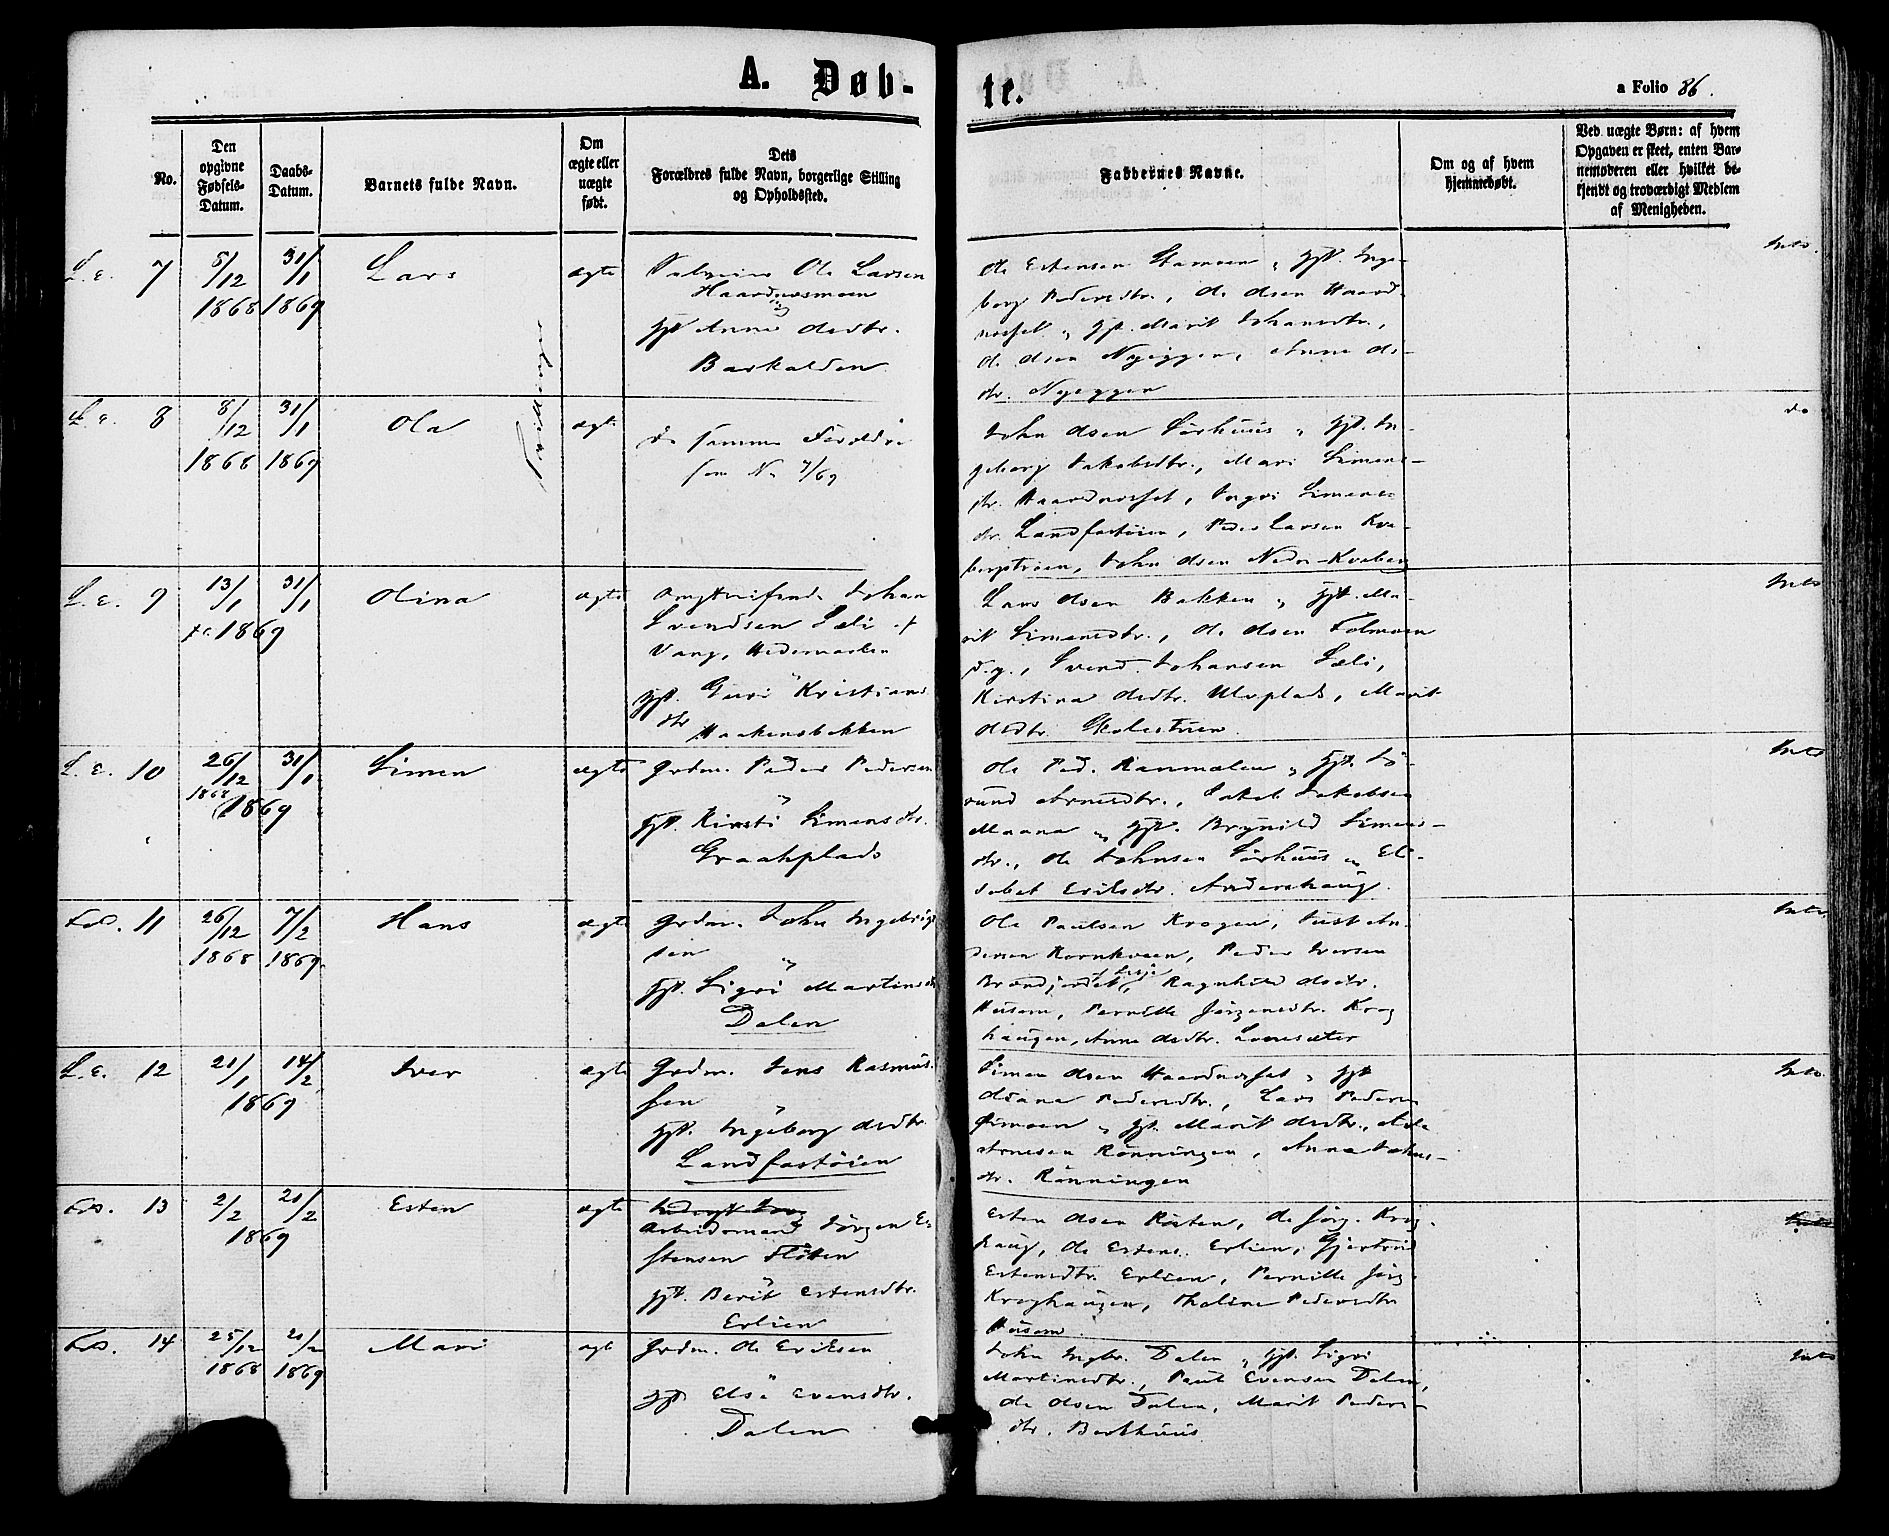 A. Døb-
te.
a Folio 86.
No.
Den
opgivne
Fødsels-
Datum.
Daabs-
Datum.
Barnets fulde Navn.
Om
ægte eller
uægte
født.
Dets
Forældres fulde Navn, borgerlige Stilling
og Opholdssted.
Faddernes Navne.
Om og af hvem
hjemmedøbt.
Ved uægte Børn: af hvem
Opgaven er skeet, enten Bar-
nemoderen eller hvilket be-
kjendt og troværdigt Medlem
af Menigheden.
L. E. 7
8/12
1868
31/1
1869
Lars
ægte
Ole Larsen
Haardnæsmoen
og
Anne Olsdtr.
Barkalden
Ole Estensen Stamoen, gft. Inge-
borg Pedersdtr., Ole Olsen Haard-
næset, gft. Marit Johansdtr.,
Ole Olsen Nyeggen, Anne Ols-
dtr. Nyeggen
L. E. 8
8/12
1868
31/1
1869
Ola
ægte
de samme Forældre
som No 7/69
do
John Olsen Sørhuus, gft. In-
geborg Jakobsdtr., Mari Simens-
dtr. Haardnæset, Ingri Simens-
dtr. Landfastøien, Peder Larsen Kva-
bergstrøen, John Olsen Nedre-Kvaberg
L. E. 9
13/1
31/1
1869
Olina
ægte
Johan
Svendsen Sæli af
Vang, Hedemarken
gft. Guri Kristians-
dtr
Haakensbakken
Lars Olsen Bakken, gft. Ma-
rit Simensdtr., Ole Olsen Folmoen
d.y., Svend Johansen Sæli,
Kirstina Olsdtr. Ulvplads, Marit
Olsdtr.
L. E. 10
26/12
1868
31/1
1869
Simen
ægte
Grdm. Peder Pedersen
gft. Kirsti Simensdtr.
Graahplads
Ole Ped. gft. Jø-
rund Arnesdtr., Jakob Jakobsen
Maana, gft. Brynild Simens-
dtr., Ole Johnsen Sørhuus, Eli-
sabet Eriksdtr. Andershaug.
Fold. 11
26/12
1868
7/2
1869
Hans
ægte
Grdm. John Ingebrigt-
sen
gft. Sigri Martinsdtr
Dalen
Ole Paulsen Krogen, Just An-
dersen Kornkveen, Peder Iversen
Ragnhild Olsdtr.
Husom, Pernille Jørgensdtr. Krog-
haugen, Anne Olsdtr.
L. E. 12
21/1
14/2
1869
Iver
ægte
Grdm. Jens Rasmus-
sen
gft. Ingeborg Olsdtr.
Landfastøien
Simen Olsen Haardnæset, gft
Oliana Pedersdtr., Lars Peders.
gft. Marit Olsdtr.,
Arnesen Rønningen, Anne Johns-
dtr. Rønningen
Fold. 13
2/2
21/2
1869
Esten
ægte
Arbeidsmand Jørgen E-
stensen Fløtten
gft. Berit Estensdtr.
Erlien
Esten Olsen Røsten, Ole Jørg. Krog-
haug, Ole Estens. Erlien, Gjertrud
Estensdtr. Erlien, Pernille Jørg.
Kroghaugen, Thaline Pedersdtr
Husom.
Fold. 14
25/12
1868
21/2
1869
Mari
ægte
Grdm. Ole Eriksen
gft Else Evensdtr.
Dalen
John Ingbr. Dalen, gft. Sigri
Martinsdtr., Paul Evensen Dalen,
Ole Olsen Dalen, Marit Peders-
dtr. Barkhuus